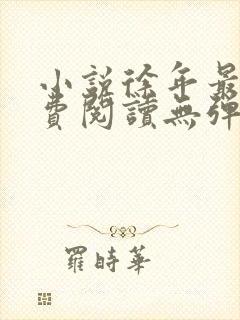 小說徐年最
費閱讀無彈
羅時華